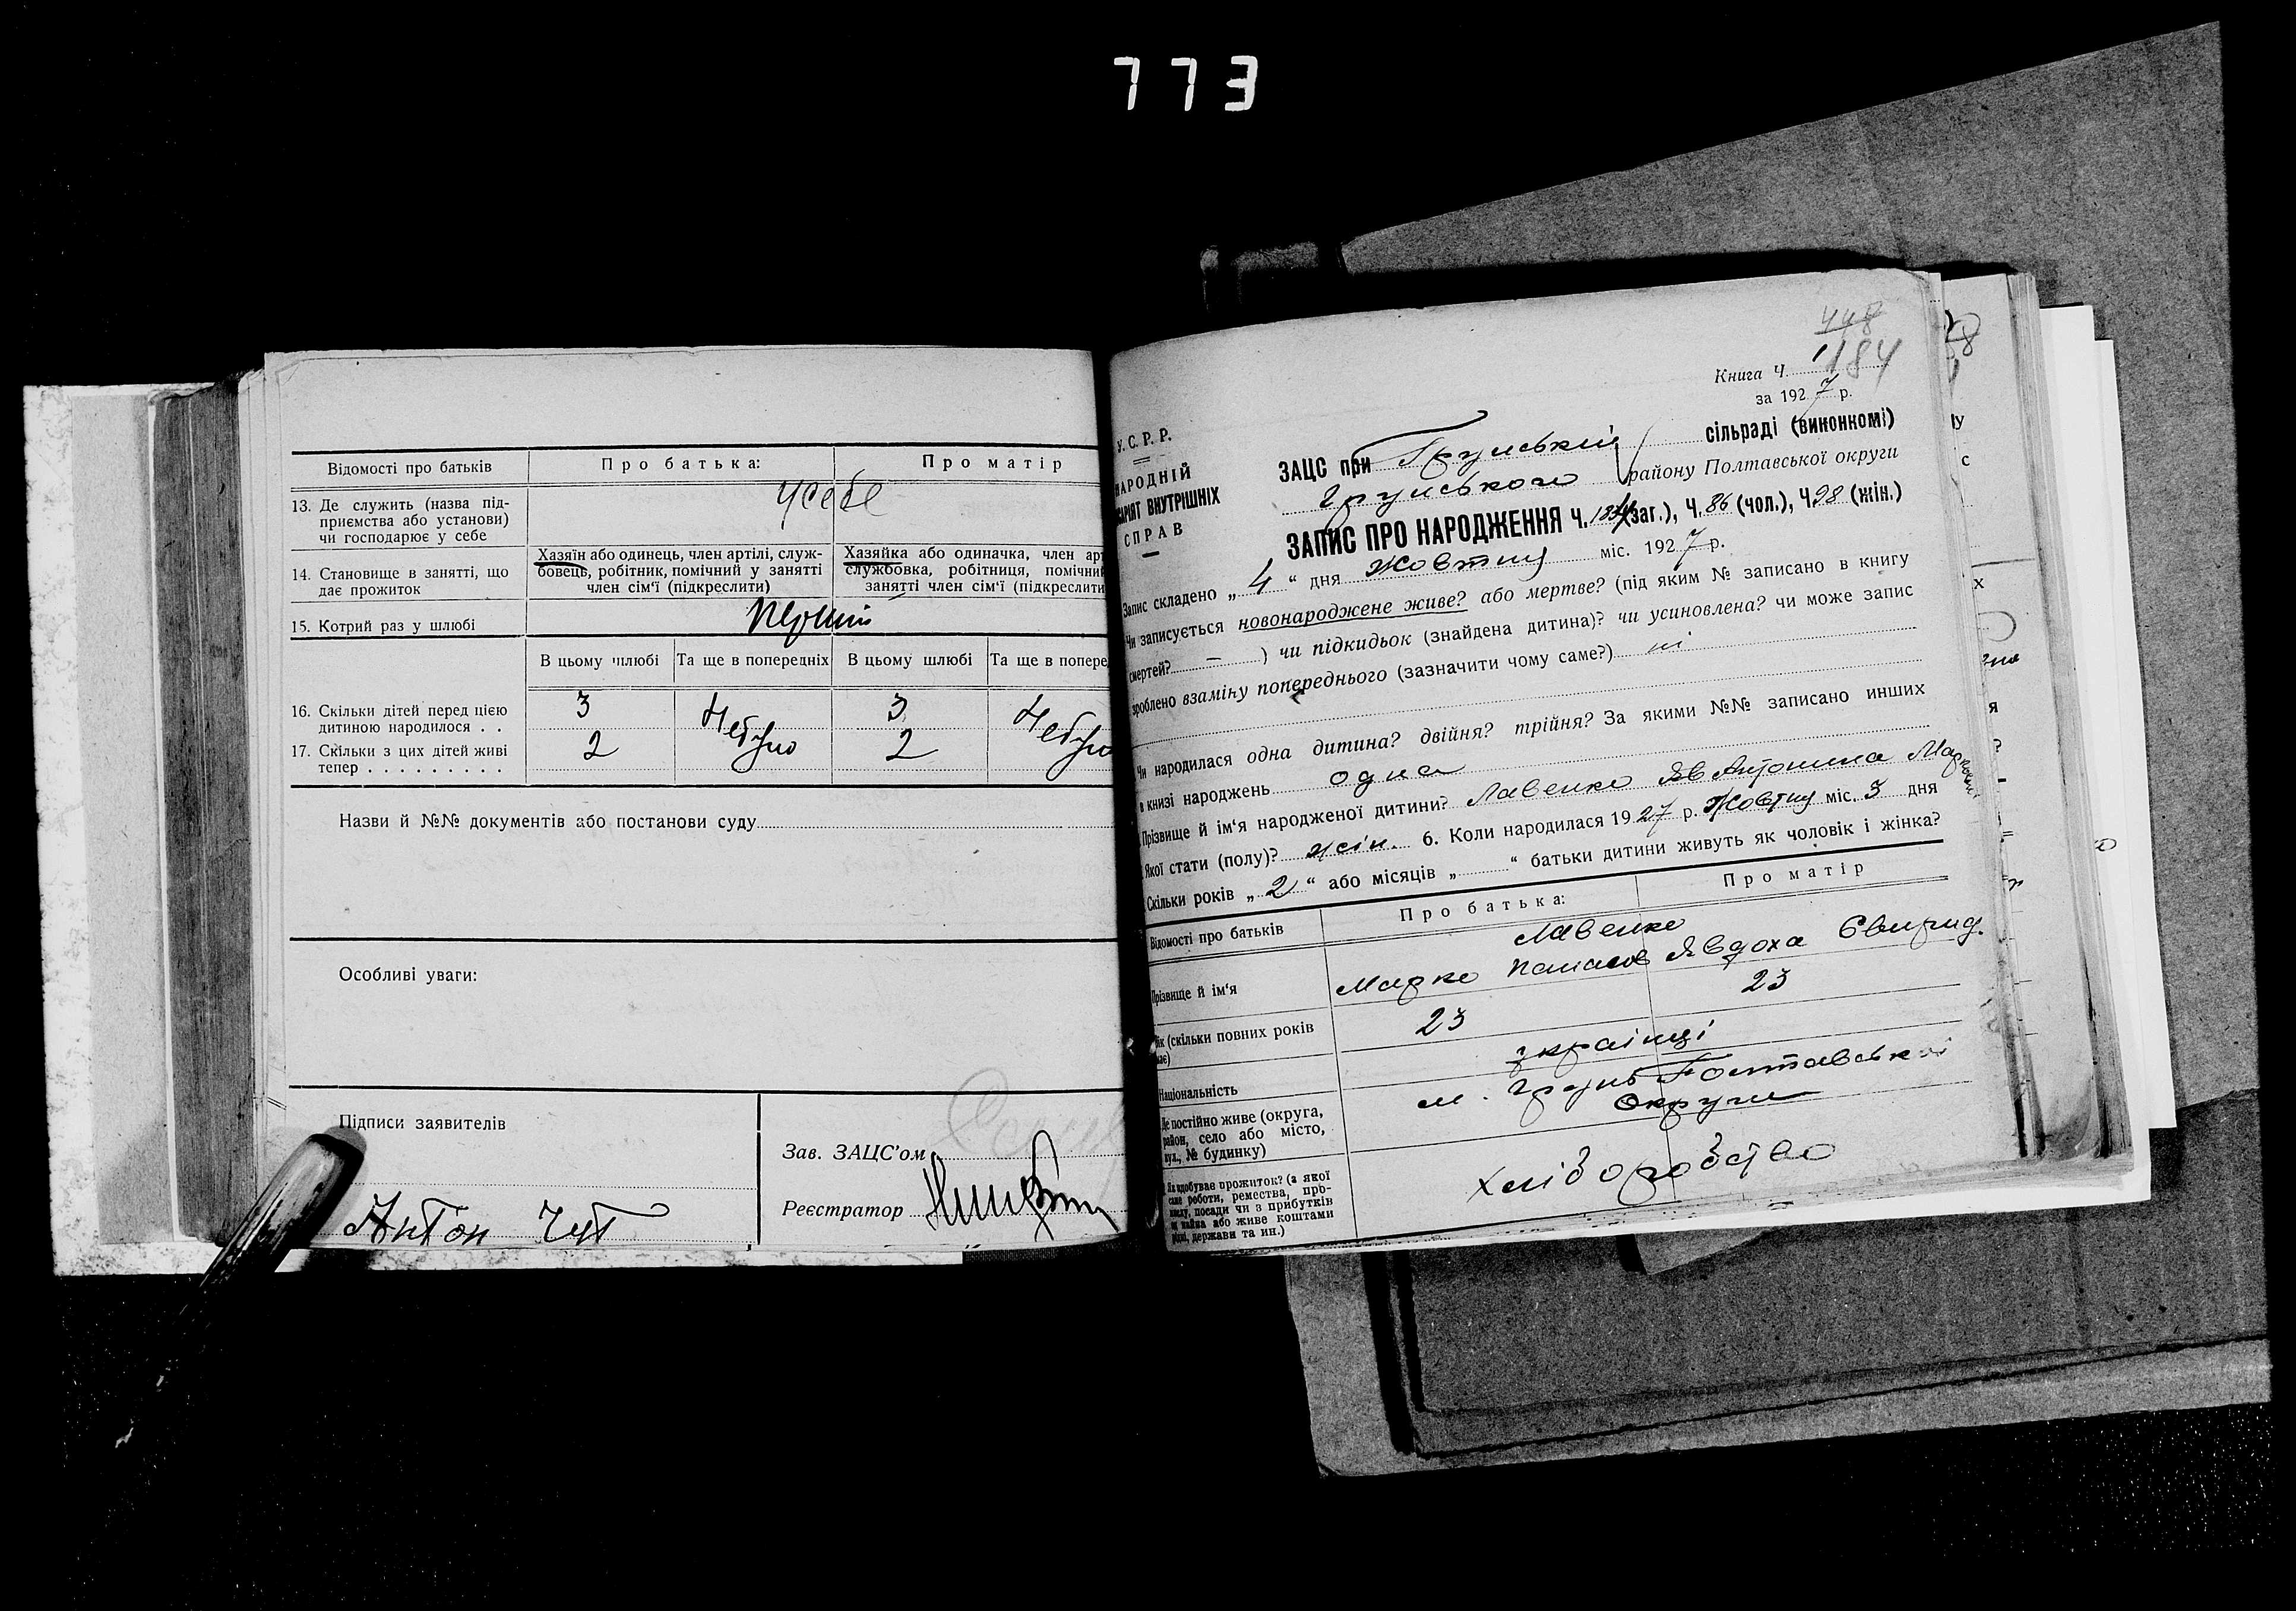 773
Відомості про батьків
Про батька:
Про матір
13. Де служить (назва під-
приємства або установи)
чи господарює у себе
усебе
14. Становище в занятті, що
дає прожиток
Хазяїн або одинець, член артілі, служ-
бовець, робітник, помічний у занятті
член сім'ї (підкреслити)
Хазяйка або одиначка, член арт
службовка, робітниця, помічни
занятті член сім'ї (підкреслити
15. Котрий раз у шлюбі
перший
В цьому шлюбі
Та ще в попередніх
В цьому шлюбі
Та ще в попере
16. Скільки дітей перед цією
дитиною народилося . .
3
3
17. Скільки з цих дітей живі
тепер . . . . . . . . .
2
Небуло
2
Небуло
Назви й №№ документів або постанови суду
Особливі уваги:
Підписи заявителів
Антон Чуб
Зав. ЗАЦС'ом
Реєстратор
448
184
Книга Ч.
за 1927 р.
У.С.Р.Р.
НАРОДНІЙ
САРІЯТ ВНУТРІШНІХ
СПРАВ
ЗАЦС при Грунській сільраді (виконкомі)
Грунського району Полтавської округи
ЗАПИС ПРО НАРОДЖЕННЯ Ч. 184 (заг.), Ч. 86 (чол.), Ч 98 (жін.)
Запис складено „ 4 “ дня Жовтня міс. 1927 р.
Чи записується новонароджене живе? або мертве? (під яким № записано в книгу
смертей? – ) чи підкидьок (знайдена дитина)? чи усиновлена? чи може запис
зроблено взаміну попереднього (зазначити чому саме?) ні
Чи народилася одна дитина? двійня? трійня? За якими №№ записано инших
в книзі народжень одна
Прізвище й ім'я народженої дитини? Лавенко Антонина
Якої стати (полу)? жін. 6. Коли народилася 1927 р. Жовтня міс. 3 дня
Скільки років „ 2 “ або місяців „ “ батьки дитини живуть як чоловік і жінка?
Відомості про батьків
Про батька:
Про матір
Прізвище й ім'я
Лавенко
Марко Панасов Явдоха Свирид.
Вік (скільки повних років
має)
23
23
Національність
українці
Де постійно живе (округа,
район, село або місто,
вул., № будинку)
м. Грунь Полтавської
Округи
Як здобуває прожиток? (з якої
саме роботи, ремества, про-
мислу, посади чи з прибутків
з майна або живе коштами
рідні, держави та ин.)
хліборобство